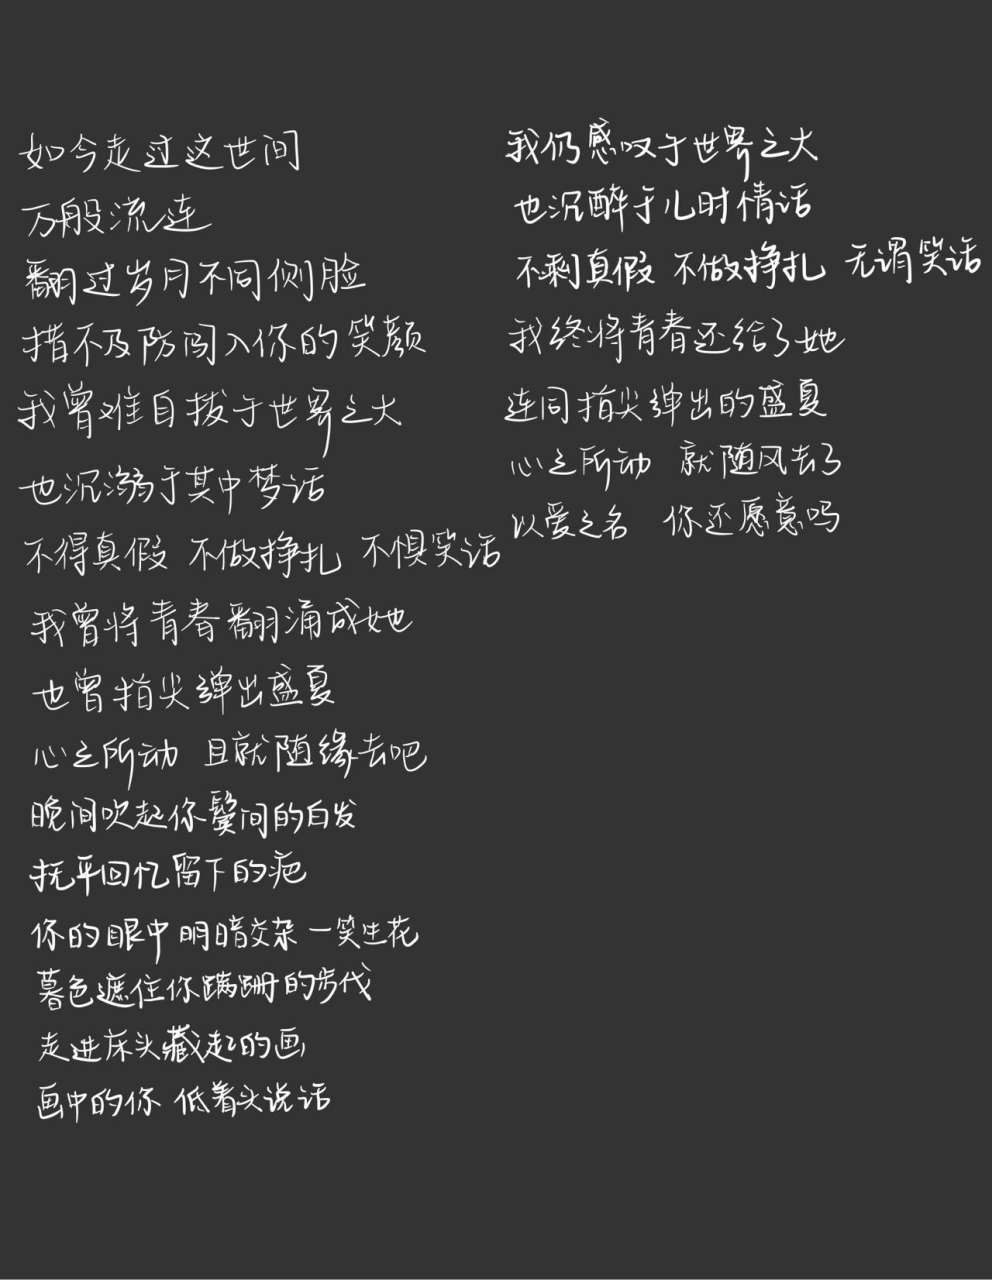 如今走过这世间
万般流连
翻过岁月不同侧脸
措不及防闯入你的笑颜
我曾难自拔于世界之大
也沉溺于其中梦话
不得真假 不做挣扎 不惧笑话
我曾将青春翻涌成她
也曾指尖弹出盛夏
心之所动 且就随缘去吧
晚间吹起你鬓间的白发
抚平回忆留下的疤
你的眼中 明暗交杂 一笑生花
暮色遮住你蹒跚的步伐
走进床头藏起的画
画中的你 低着头说话
我仍感叹于世界之大
也沉醉于儿时情话
不剩真假 不做挣扎 无谓笑话
我终将青春还给了她
连同指尖弹出的盛夏
心之所动 就随风去了
以爱之名 你还愿意吗